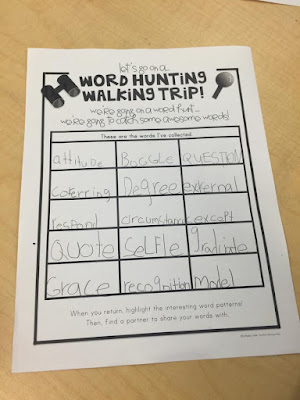 let's go on a
WORD HUNTING
WALKING TRIP!
we're going on a word hunt...
we're going to catch some awesome words!
These are the words I've collected.
attitude BOGGLE QUESTION
coferring Degree external
respond circumstance except
QUOTE SelFIe gradinate
Grace recognition Model
When you return, highlight the interesting word patterns!
Then, find a partner to share your words with.